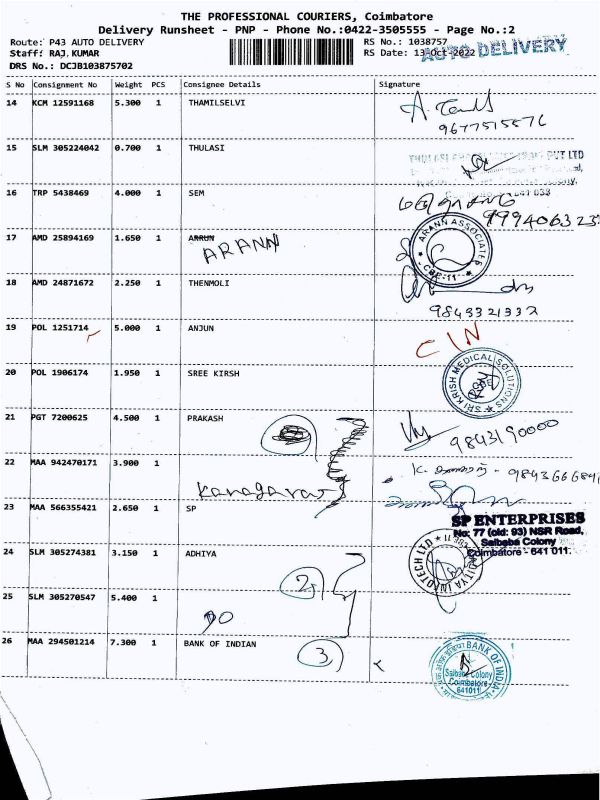 THE PROFESSIONAL COURIERS, Coimbatore
Delivery Runsheet - PNP - Phone No.:0422-3505555 - Page No.:2
Route: P43 AUTO DELIVERY
Staff: RAJ.KUMAR
DRS No.: DCJB103875702
RS No.: 1038757
RS Date: 13-Oct-2022
AUTO DELIVERY
S No Consignment No Weight PCS Consignee Details Signature
14 KCM 12591168 5.300 1 THAMILSELVI
9677515576
15 SLM 305224042 0.700 1 THULASI
PVT LTD
16 TRP 5438469 4.000 1 SEM
9994063232
17 AMD 25894169 1.650 1 ARRUN
ARANN
ARANN ASSOCIATES
CBE-11
18 AMD 24871672 2.250 1 THENMOLI
9843321332
19 POL 1251714 5.000 1 ANJUN
CIN
20 POL 1906174 1.950 1 SREE KIRSH
SRI KRISH MEDICAL SOLUTIONS
21 PGT 7200625 4.500 1 PRAKASH
9843190000
22 MAA 942470171 3.900 1
Kanagaraj
23 MAA 566355421 2.650 1 SP
SP ENTERPRISES
No: 77 (old: 93) NSR Road,
Saibaba Colony
Coimbatore - 641 011.
24 SLM 305274381 3.150 1 ADHIYA
2
ADITYA INFOTECH LTD
25 SLM 305270547 5.400 1
DO
26 MAA 294501214 7.300 1 BANK OF INDIAN
3
BANK OF INDIA
Saibaba Colony
Coimbatore
641011